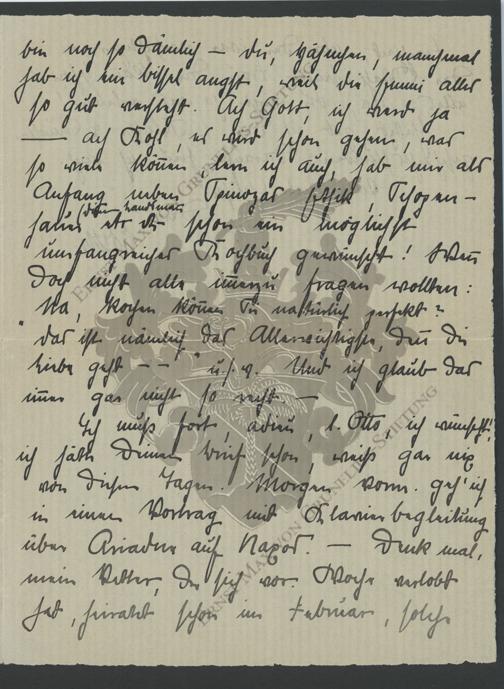 bin noch so dämlich – du, Hähnchen, manchmal
hab ich ein bissel angst, weil die Emmi alles
so gut versteht. Ach Gott, ich werd ja
— ach Kohl, es wird schon gehen, was
so viele können, lern ich auch, hab mir als
Anfang neben Spinozas Ethik, Schopen-
hauer etc schon ein möglichst
umfangreiches Kochbuch gewünscht! Wenn
doch nicht alle immerzu fragen wollten:
"Na, kochen können Sie natürlich perfekt?
"das ist nämlich das Allerwichtigste, denn die
Liebe geht – – " u.s.w. Und ich glaub das
immer gar nicht so recht –
Ich muß fort, adieu, l. Otto, ich wünscht',
ich hätte Deinen Brief schon, weiß gar nix
von diesen Tagen. Morgen vorm. geh' ich
in einen Vortrag mit Klavierbegleitung
über Ariadne auf Naxos. – Denk mal,
mein Vetter, der sich vor. Woche verlobt
hat, heiratet schon im Februar, solche
ERNST MAX VON GRUNELIUS-STIFTUNG
ERNST MAX VON GRUNELIUS-STIFTUNG